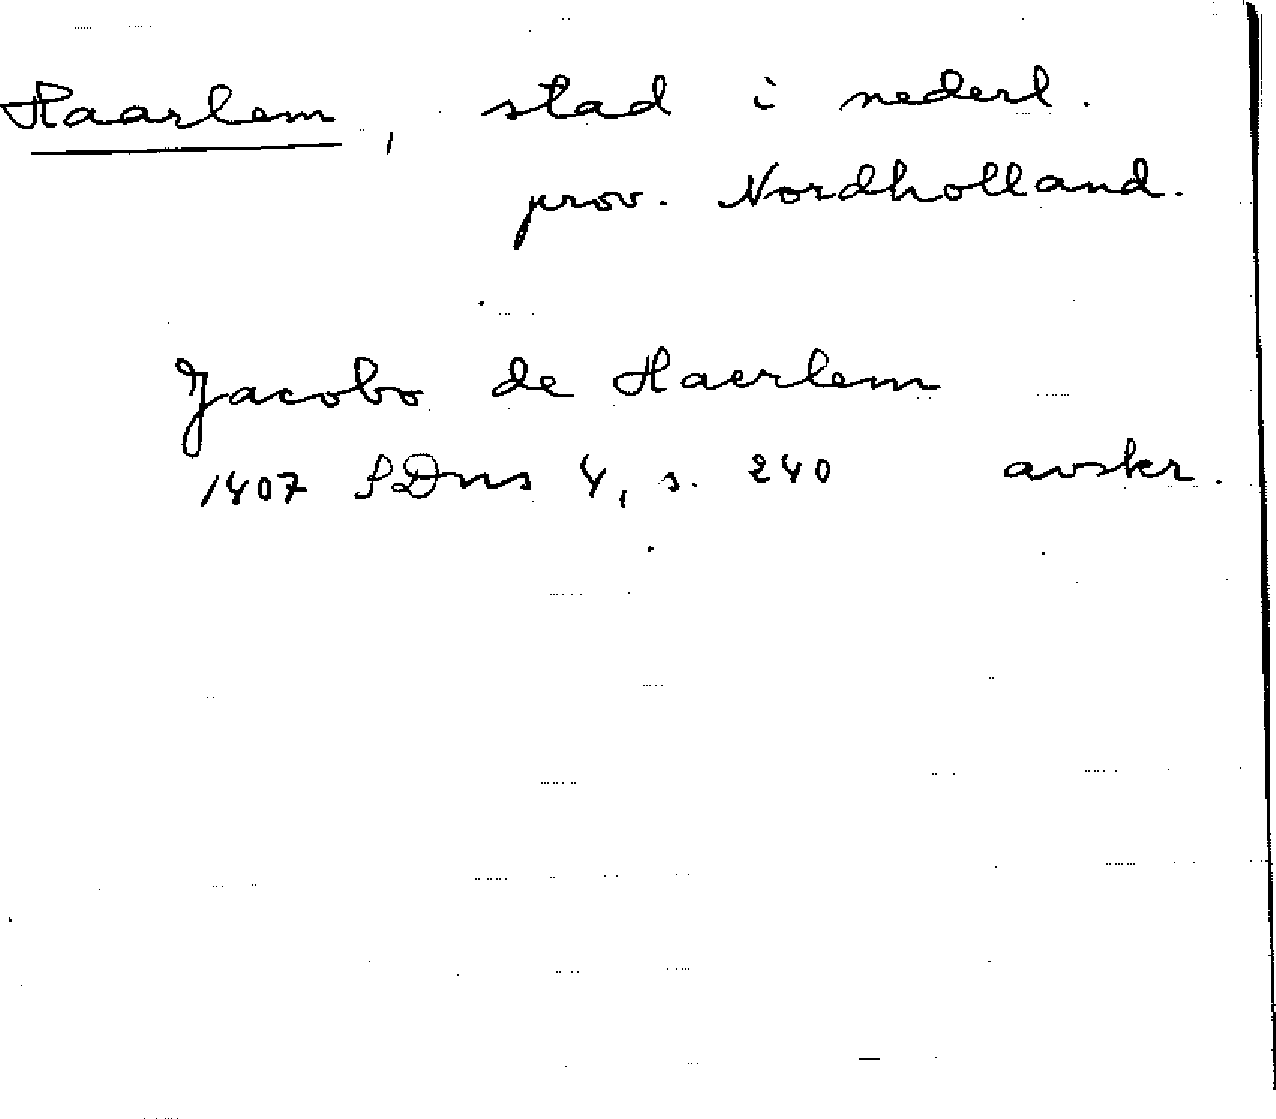 Haarlem, stad i nederl.
prov. Nordholland.
Jacobo de Haerlem
1407 SDns 4, s. 240 avskr.